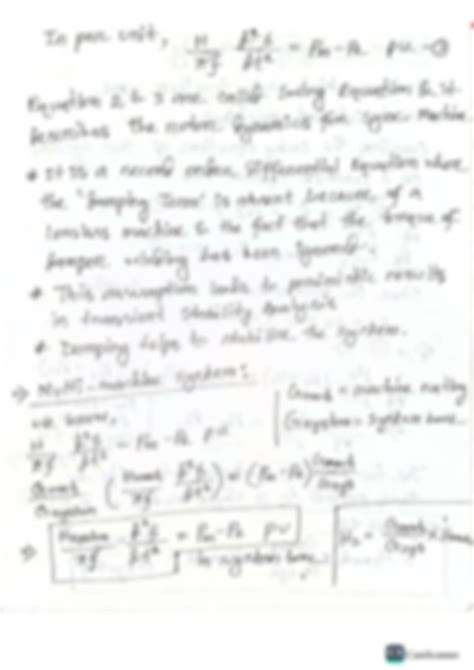 In per unit, H/πf d²δ/dt² = Pm - Pe pu
Equation 2 & 3 are called Swing Equation & it
describes the rotor dynamics for sync. Machine
* It is a second order Differential Equation where
the 'Damping Term' is absent because of a
lossless machine & the fact that the torque of
damper winding has been ignored.
* This assumption leads to pessimistic results
in transient Stability Analysis
* Damping helps to stabilise the system.
⇒ Multi-machine system:
we have,
H/πf d²δ/dt² = Pm - Pe pu
Gmach = machine rating
Gsystem = system base
Gmach/Gsystem (Hmach/πf d²δ/dt²) = (Pm - Pe) Gmach/Gsyst
⇒ Hsystem/πf d²δ/dt² = Pm - Pe pu
in system base
CamScanner